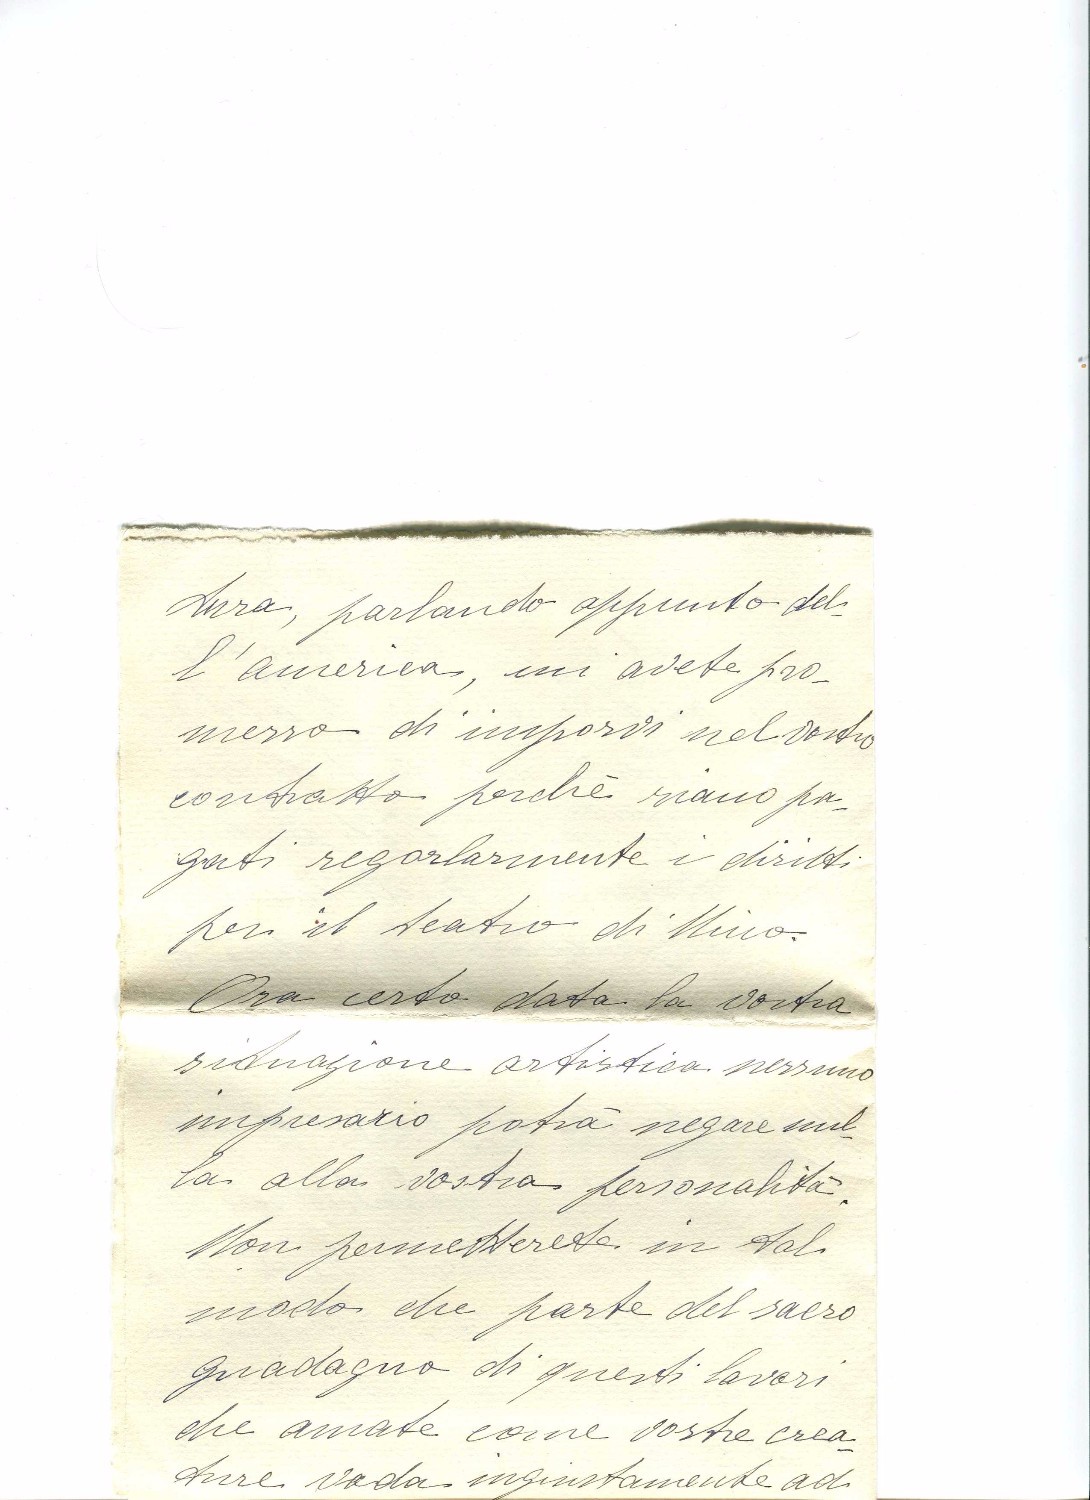 tura, parlando appunto del-
l'america, mi avete pro-
messo di imporvi nel vostro
contratto perchè siano pa-
gati regolarmente i diritti
per il teatro di Nino.
Ora certo data la vostra
situazione artistica nessuno
impresario potrà negare nul-
la alla vostra personalità.
Non permetterete in tal
modo che parte del sacro
guadagno di questi lavori
che amate come vostre crea-
ture vada ingiustamente ad